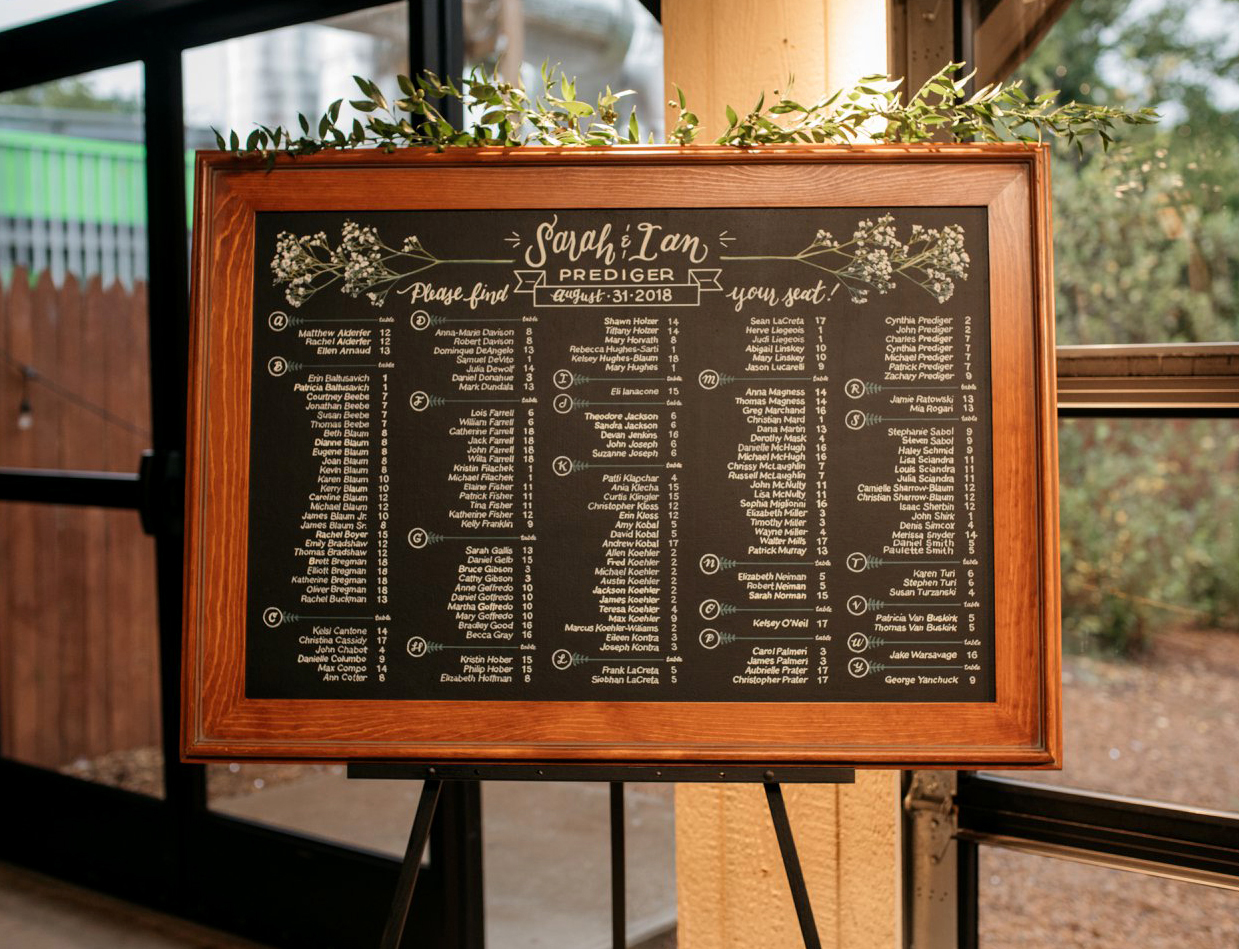 Sarah & Ian
PREDIGER
Please find
august · 31 · 2018
your seat!
A table
Matthew Alderfer 12
Rachel Alderfer 12
Ellen Arnaud 13
B table
Erin Baltusavich 1
Patricia Baltusavich 1
Courtney Beebe 7
Jonathan Beebe 7
Susan Beebe 7
Thomas Beebe 7
Beth Blaum 8
Dianne Blaum 8
Eugene Blaum 8
Joan Blaum 8
Kevin Blaum 8
Karen Blaum 10
Kerry Blaum 10
Caroline Blaum 12
Michael Blaum 12
James Blaum Jr. 10
James Blaum Sr. 8
Rachel Boyer 15
Emily Bradshaw 12
Thomas Bradshaw 12
Brett Bregman 18
Elliott Bregman 18
Katherine Bregman 18
Oliver Bregman 18
Rachel Buckman 13
C table
Kelsi Cantone 14
Christina Cassidy 17
John Chabot 4
Danielle Columbo 9
Max Compo 14
Ann Cotter 8
D table
Anna-Marie Davison 8
Robert Davison 8
Dominque DeAngelo 13
Samuel DeVito 1
Julia Dewolf 14
Daniel Donahue 3
Mark Dundala 13
F table
Lois Farrell 6
William Farrell 6
Catherine Farrell 18
Jack Farrell 18
John Farrell 18
Willa Farrell 18
Kristin Filachek 1
Michael Filachek 1
Elaine Fisher 11
Patrick Fisher 11
Tina Fisher 11
Katherine Fisher 12
Kelly Franklin 9
G table
Sarah Gallis 13
Daniel Gelb 15
Bruce Gibson 3
Cathy Gibson 3
Anne Goffredo 10
Daniel Goffredo 10
Martha Goffredo 10
Mary Goffredo 10
Bradley Good 16
Becca Gray 16
H table
Kristin Hober 15
Philip Hober 15
Elizabeth Hoffman 8
Shawn Holzer 14
Tiffany Holzer 14
Mary Horvath 8
Rebecca Hughes-Sarti 1
Kelsey Hughes-Blaum 18
Mary Hughes 1
I table
Eli Ianacone 15
J table
Theodore Jackson 6
Sandra Jackson 6
Devan Jenkins 16
John Joseph 6
Suzanne Joseph 6
K table
Patti Klapchar 4
Ania Klecha 15
Curtis Klingler 15
Christopher Kloss 12
Erin Kloss 12
Amy Kobal 5
David Kobal 5
Andrew Kobal 17
Allen Koehler 2
Fred Koehler 2
Michael Koehler 2
Austin Koehler 2
Jackson Koehler 2
James Koehler 2
Teresa Koehler 4
Max Koehler 9
Marcus Koehler-Williams 2
Eileen Kontra 3
Joseph Kontra 3
L table
Frank LaCreta 5
Siobhan LaCreta 5
Sean LaCreta 17
Herve Liegeois 1
Judi Liegeois 1
Abigail Linskey 10
Mary Linskey 10
Jason Lucarelli 9
M table
Anna Magness 14
Thomas Magness 14
Greg Marchand 16
Christian Mard 1
Dana Martin 13
Dorothy Mask 4
Danielle McHugh 16
Michael McHugh 16
Chrissy McLaughlin 7
Russell McLaughlin 7
John McNulty 11
Lisa McNulty 11
Sophia Miglionni 16
Elizabeth Miller 3
Timothy Miller 3
Wayne Miller 4
Walter Mills 17
Patrick Murray 13
N table
Elizabeth Neiman 5
Robert Neiman 5
Sarah Norman 15
O table
Kelsey O'Neil 17
P table
Carol Palmeri 3
James Palmeri 3
Aubrielle Prater 17
Christopher Prater 17
Cynthia Prediger 2
John Prediger 2
Charles Prediger 7
Cynthia Prediger 7
Michael Prediger 7
Patrick Prediger 7
Zachary Prediger 9
R table
Jamie Ratowski 13
Mia Rogari 13
S table
Stephanie Sabol 9
Steven Sabol 9
Haley Schmid 9
Lisa Sciandra 11
Louis Sciandra 11
Julia Sciandra 11
Camielle Sharrow-Blaum 12
Christian Sharrow-Blaum 12
Isaac Sherbin 12
John Shirk 1
Denis Simcox 4
Merissa Snyder 14
Daniel Smith 5
Paulette Smith 5
T table
Karen Turi 6
Stephen Turi 6
Susan Turzanski 4
V table
Patricia Van Buskirk 5
Thomas Van Buskirk 5
W table
Jake Warsavage 16
Y table
George Yanchuck 9